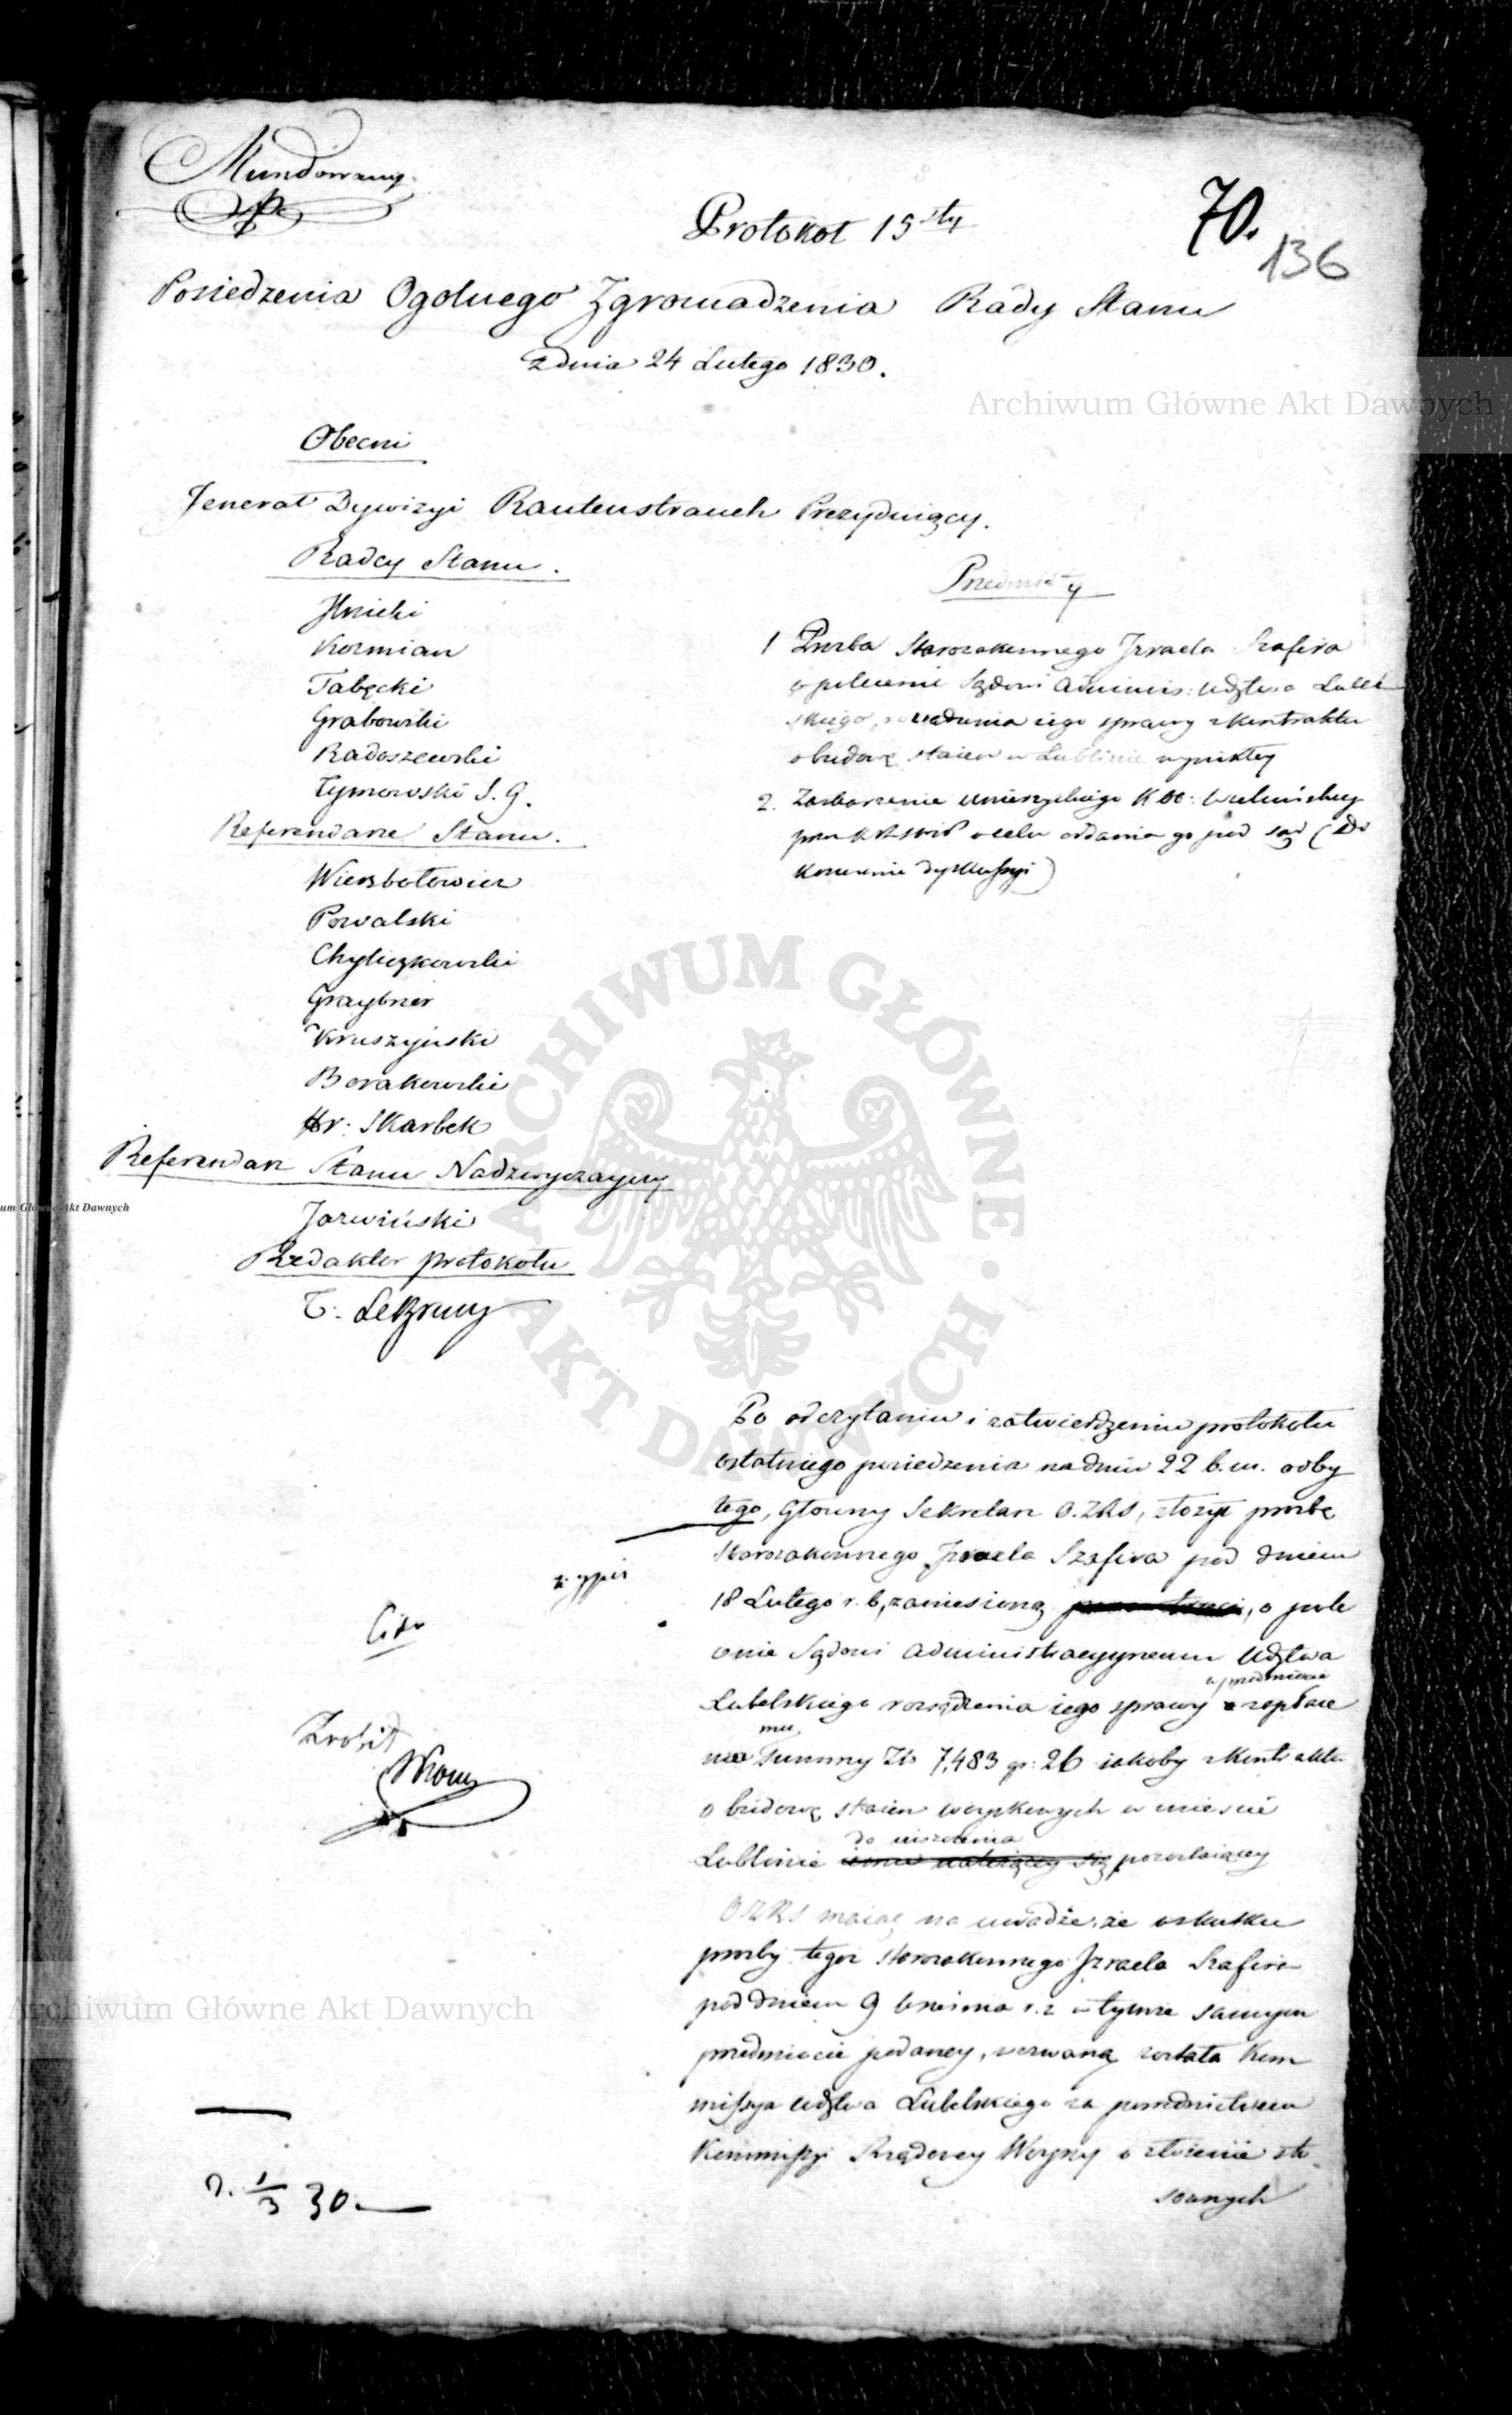 Mundowany.
70.
136
Protokoł 15sty
Posiedzenia Ogolnego Zgromadzenia Rady Stanu
z dnia 24 Lutego 1830.
Archiwum Główne Akt Dawnych
Obecni
Jenerał Dywizyi Rautenstrauch Prezyduiący.
Radcy Stanu.
Jlnicki
Kozmian
Tabęcki
Grabowski
Radoszewski
Tymowski S. G.
Referendarze Stanu.
Wierzbołowicz
Powalski
Chyliczkowski
Graybner
Kruszyński
Borakowski
Hr: Skarbek
Referendarz Stanu Nadzwyczayny
Jarwiński
Redaktor protokołu
T. LeBrun
Przedmioty
1 Prozba Starozakonnego Jzraela Szafira
o polecenie Sądowi Adminis: Wdztwa Lubel
skiego, rozsądzenia iego sprawy z Kontraktu
o budowę staien w Lublinie wynikłey
2. Zaskarzenie
w celu oddania go pod sąd (Do
konczenie dyskussyi)
ARCHIWUM GŁÓWNE AKT DAWNYCH
um Główne Akt Dawnych
Po odczytaniu i zatwierdzeniu protokołu
ostatniego posiedzenia na dniu 22 b. m. odby
tego, Głowny Sekretarz O.ZRS, złożył prozbę
Starozakonnego Jzraela Szafira pod dniem
18 Lutego r. b, zaniesioną, o pole
cenie Sądowi Administracyynemu Wdztwa
Lubelskiego rozsądzenia iego sprawy w przedmiocie zapłace
nia mu Summy Złp 7,483 gr: 26 iakoby z Kontraktu
o budowę staien woyskowych w mieście
Lublinie do uiszczenia pozostaiącey
OZRS maiąc na uwadze, że w skutku
prozby tegoz starozakonnego Jzraela Szafira
pod dniem 9 Wrzesnia r. z w tymze samym
przedmiocie podaney, wezwaną została Kom
missya Wdztwa Lubelskiego za posrednictwem
Kommissyi Rządowey Woyny o złożenie sto
sownych
Cito
Zrobił
Archiwum Główne Akt Dawnych
D. 1/3 30.